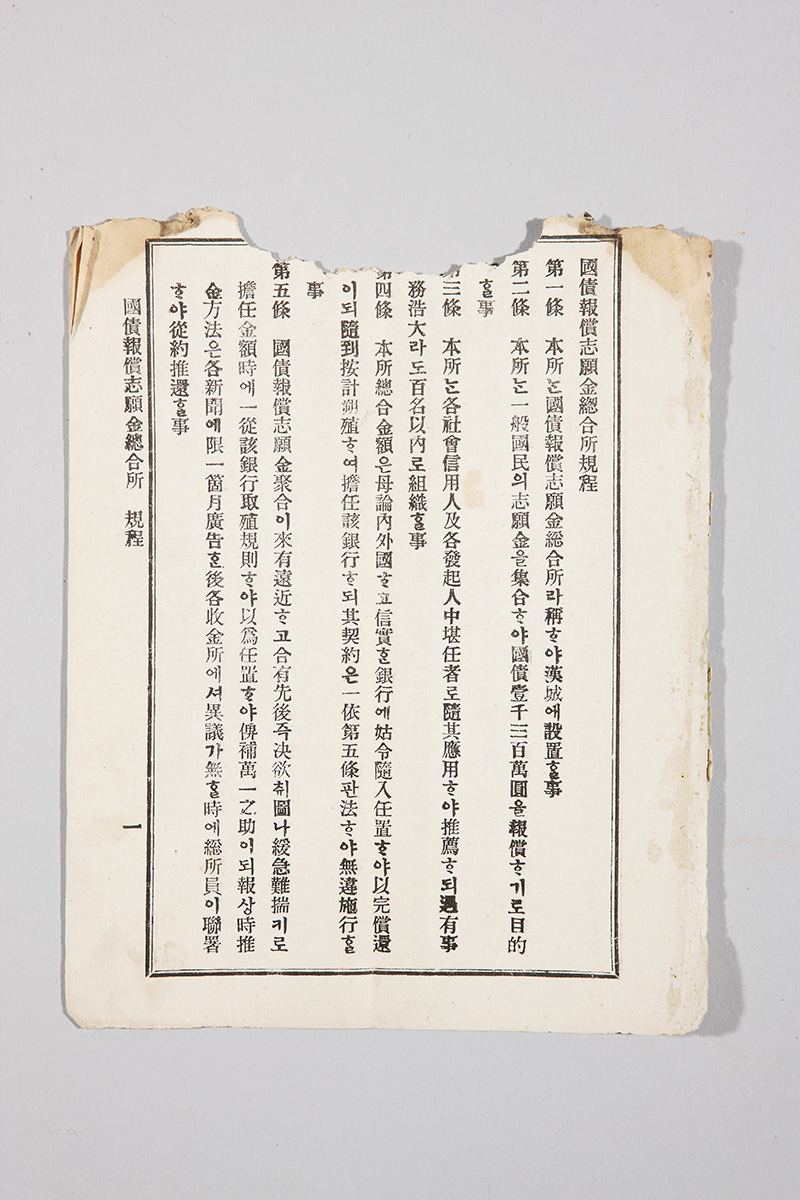 國債報償志願金總合所規程
第一條 本所ᄂᆞᆫ國債報償志願金総合所라稱ᄒᆞ야漢城에設置ᄒᆞᆯ事
第二條 本所ᄂᆞᆫ一般國民의志願金을集合ᄒᆞ야國債壹千三百萬圓을報償ᄒᆞ기로目的
ᄒᆞᆯ事
第三條 本所ᄂᆞᆫ各社會信用人及各發起人中堪任者로隨其應用ᄒᆞ야推薦ᄒᆞ되遇有事
務浩大라도百名以內로組織ᄒᆞᆯ事
第四條 本所總合金額은毋論內外國ᄒᆞ고信實ᄒᆞᆫ銀行에姑令隨入任置ᄒᆞ야以完償還
이되隨到按計殖ᄒᆞ여擔任該銀行ᄒᆞ되其契約은一依第五條판法ᄒᆞ야無違施行ᄒᆞᆯ
事
第五條 國債報償志願金聚合이來有遠近ᄒᆞ고合有先後즉決欲취圖나緩急難揣기로
擔任金額時에一從該銀行取殖規則ᄒᆞ야以爲任置ᄒᆞ야俾補萬一之助이되報上時推
金方法은各新聞에限一箇月廣告ᄒᆞᆫ後各收金所에셔異議가無ᄒᆞᆯ時에総所員이聯署
ᄒᆞ야從約推還ᄒᆞᆯ事
國債報償志願金總合所 規程
一